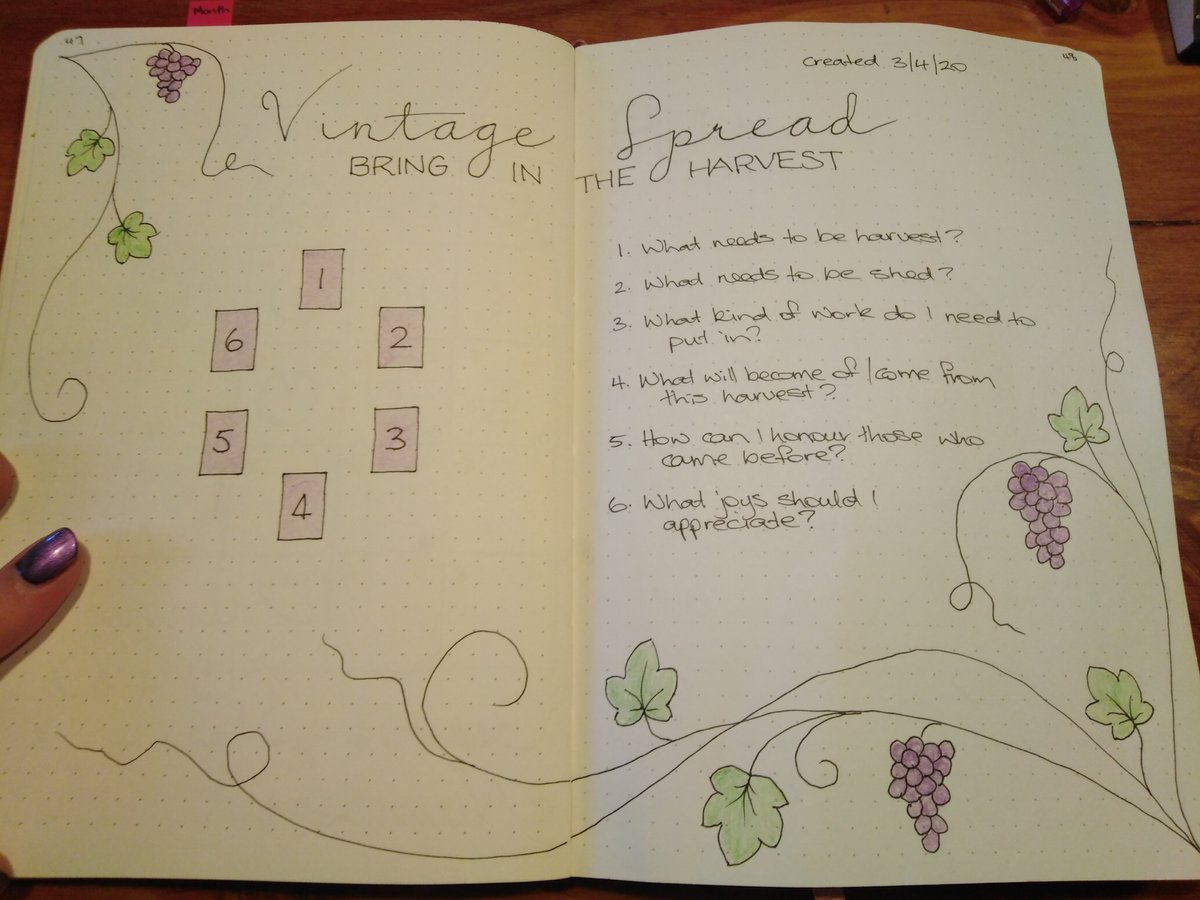 Month
47
48
created 3/4/20
Vintage Spread
BRING IN THE HARVEST
1
6
2
5
3
4
1. What needs to be harvest?
2. What needs to be shed?
3. What kind of work do I need to
put in?
4. What will become of /come from
this harvest?
5. How can I honour those who
came before?
6. What joys should I
appreciate?